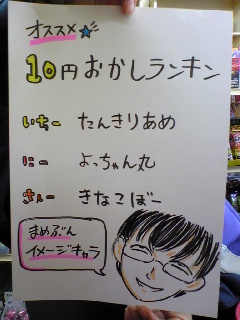 オススメ
10円おかしランキン
いちー たんきりあめ
にー よっちゃん丸
さんー きなこぼー
まめぶん
イメージキャラ